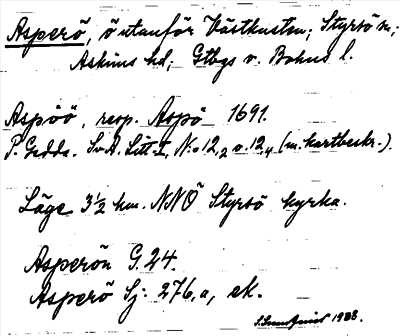 Asperö, ö utanför Västkusten; Styrsö sn;
Askims hd; Gtbgs o. Bohus l.
Aspöö, resp. Aspö 1691.
P. Gedda. SvA. Litt. I, No 12,2 o. 12,4 (m. kartbeskr.).
Läge 3½ km. NNÖ Styrsö kyrka.
Asperön G. 24.
Asperö Sj: 276, a, ek.
1933.